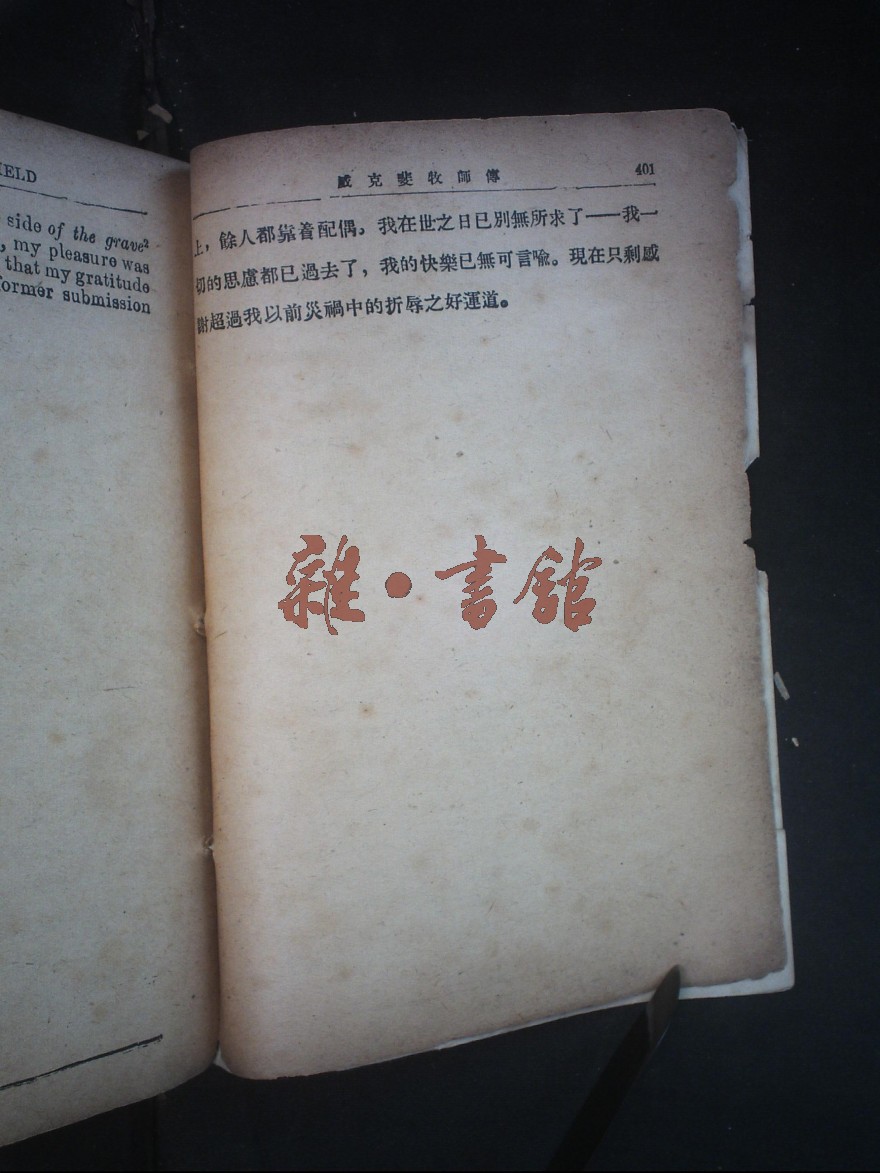 IELD
side of the grave²
, my pleasure was
that my gratitude
former submission
威克斐牧師傳 401
上，餘人都靠着配偶。我在世之日已別無所求了——我一
切的思慮都已過去了，我的快樂已無可言喩。現在只剩感
謝超過我以前災禍中的折辱之好運道。
雜·書館